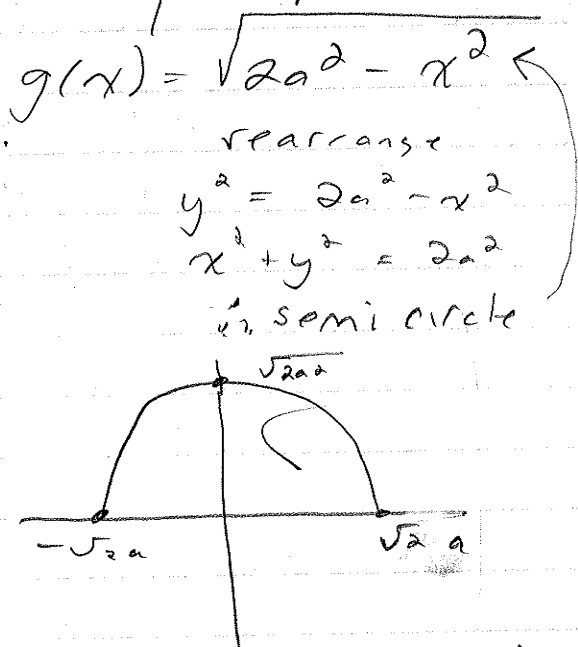 g(x) = √2a² - x²
rearrange
y² = 2a² - x²
x² + y² = 2a²
is semi circle
√2a²
-√2 a
√2 a